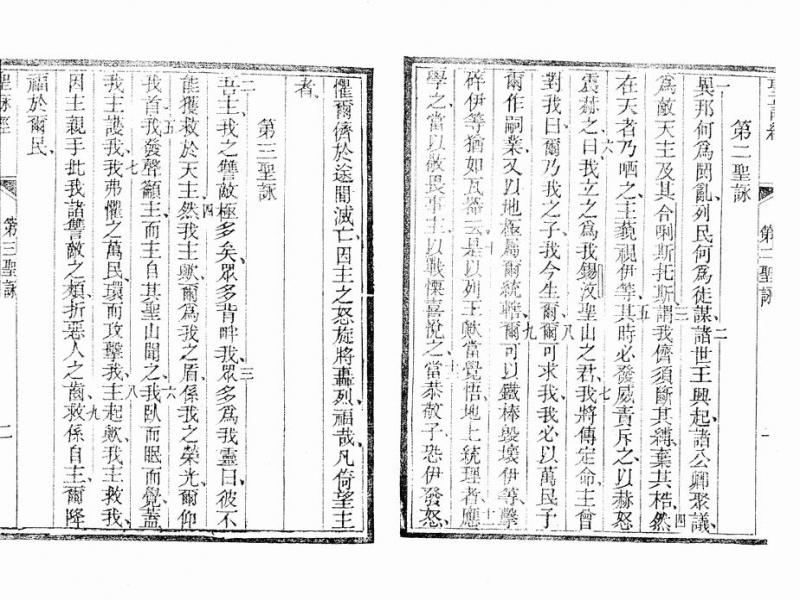 第二聖詠
第二聖詠
一異邦何為鬨亂、列民何為徒謀、二諸世王興起、諸公卿聚議、
為敵天主及其合唎斯托斯、三謂我儕須斷其縛、棄其梏、四然
在天者乃哂之、主藐視伊等、五其時必發威責斥之、以赫怒
震赫之、六曰、我立之為我錫汶聖山之君、七我將傳定命、主曾
對我曰、爾乃我之子、我今生爾、八爾可求我、我必以萬民予
爾作嗣業、又以地極屬爾統轄、九爾可以鐵棒毀壞伊等、擊
碎伊等猶如瓦器云、十是以列王歟當覺悟、地上統理者應
學之、當以敬畏事主、以戰慄喜悅之、當恭敬子、恐伊發怒、
懼爾儕於途間滅亡、因主之怒旋將轟烈、福哉、凡倚望主
者、
第三聖詠
二吾主、我之讐敵極多矣、眾多背畔我、三眾多為我靈曰、彼不
能獲救於天主、四然我主歟、爾為我之盾、係我之榮光、爾仰
我首、五我發聲籲主、而主自其聖山聞之、六我臥而眠而覺、蓋
我主護我、七我弗懼之萬民、環而攻擊我、八我主起歟、我主救我、
因主親手批我諸讐敵之頰、折惡人之齒、九救係自主、爾降
福於爾民、
聖詠經 第三聖詠 二